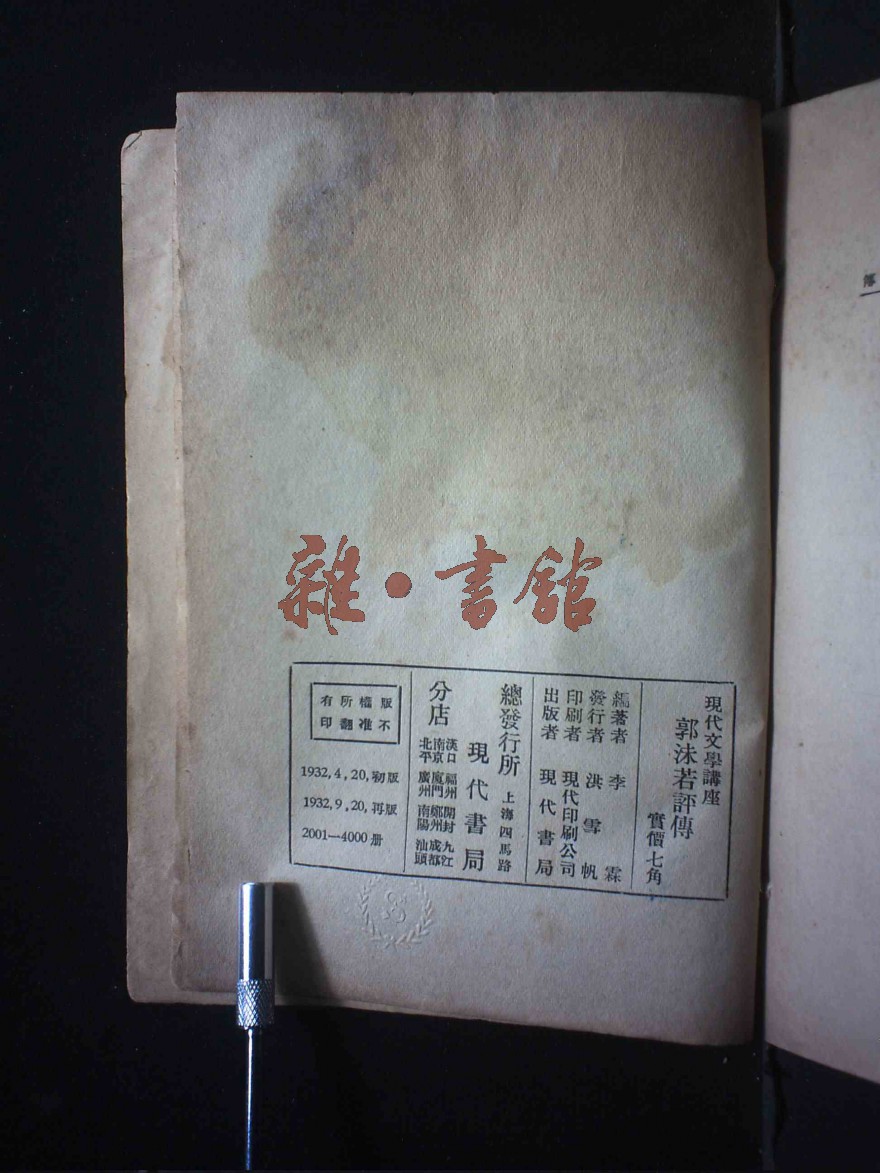 雜·書館
現代文學講座
郭沫若評傳
實價七角
編著者 李霖
發行者 洪雪帆
印刷者 現代印刷公司
出版者 現代書局
總發行所 上海四馬路
現代書局
分店
漢口 福州 開封 九江
南京 廈門 鄭州 成都
北平 廣州 南陽 汕頭
版權所有
不准翻印
1932,4,20,初版
1932,9,20,再版
2001—4000册
落